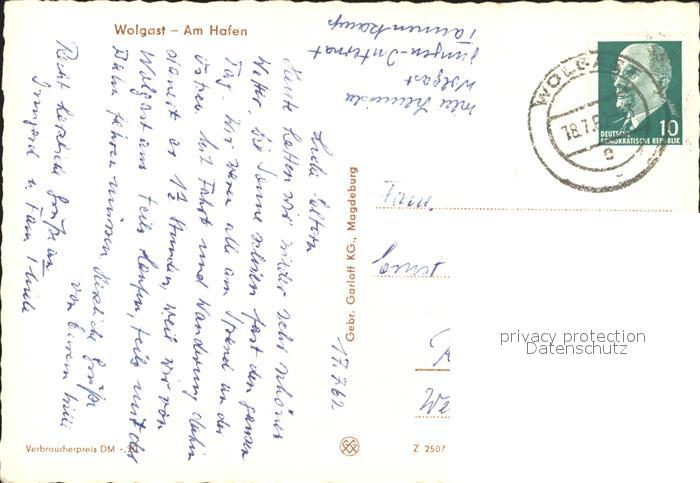 Wolgast – Am Hafen
Wolgast
Jungen-Internat
Tannenkamp
17.7.62
Liebe Eltern
Heute hatten wir wieder sehr schönes
Wetter. Die Sonne schien fast den ganzen
Tag. Wir waren alle am Strand an der
Ostsee. Die Fahrt und Wanderung dahin
dauert 1½ Stunden, weil wir von
Wolgast aus teils laufen, teils mit der
Bahn fahren müssen. Herzliche Grüße
von Eurem
Recht herzliche Grüße an
Irmgard u. Fam.
Gebr. Garloff KG., Magdeburg
WOLGAST
18.7.62
DEUTSCHE
DEMOKRATISCHE REPUBLIK
10
Fam.
Ernst
We
privacy protection
Datenschutz
Verbraucherpreis DM -.20
Z 2507